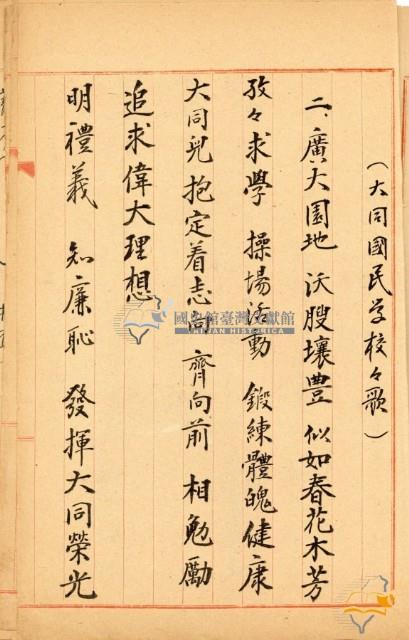 （大同國民学校々歌）
二、廣大園地　沃腴壤豊　似如春花木芳
孜々求學　操場活動　鍛練體魄健康
大同兒抱定着志向　齊向前　相勉勵
追求偉大理想
明禮義　知廉恥　發揮大同榮光
國史館臺灣文獻館
TAIWAN HISTORICA